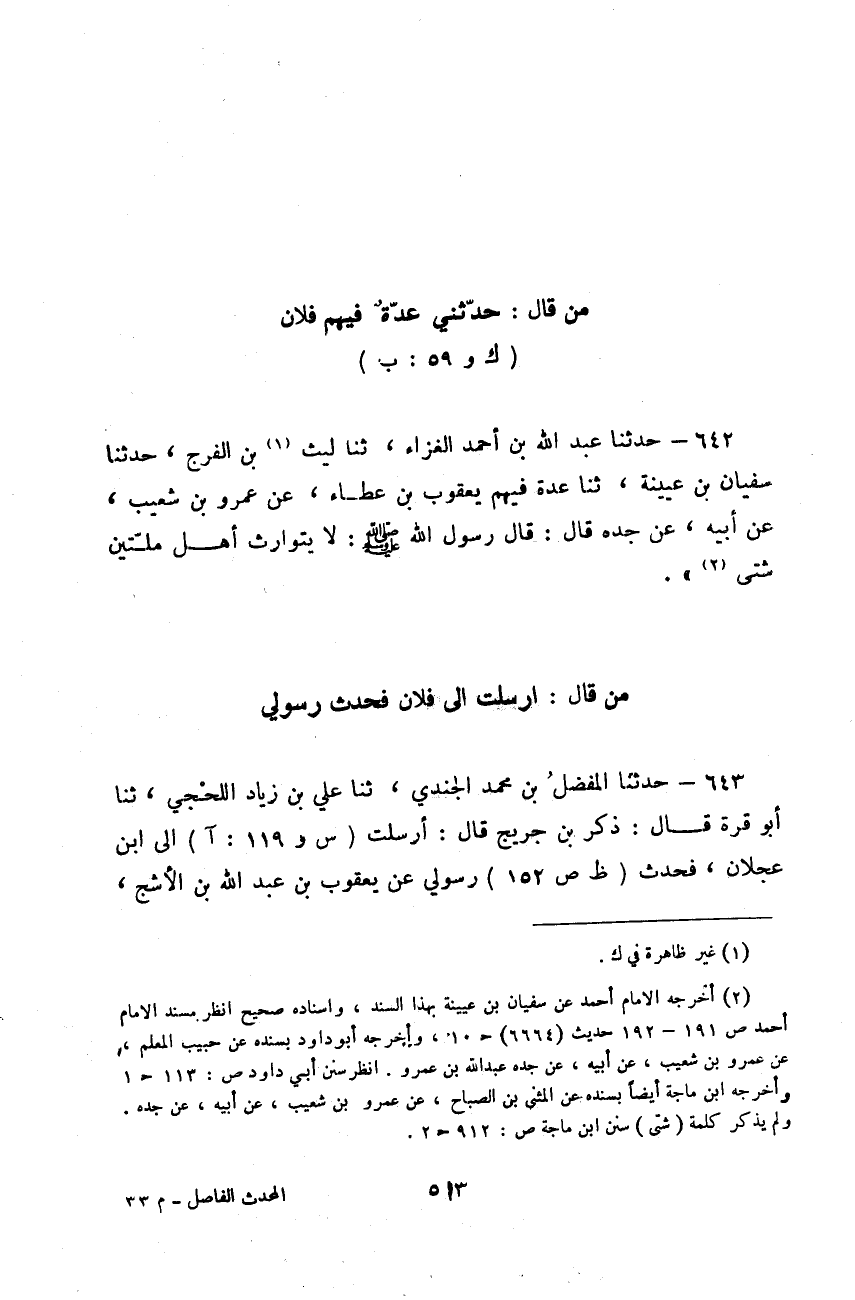 من قال : حدّثني عدّةٌ فيهم فلان
( ك و ٥٩ : ب )
٦٤٢ – حدثنا عبد الله بن أحمد الغزاء ، ثنا ليث (١) بن الفرج ، حدثنا
سفيان بن عيينة ، ثنا عدة فيهم يعقوب بن عطـاء ، عن عمرو بن شعيب ،
عن أبيه ، عن جده قال : قال رسول الله ﷺ : لا يتوارث أهـــل ملـّتين
شتى (٢) » .
من قال : ارسلت الى فلان فحدث رسولي
٦٤٣ – حدثنا المفضلُ بن محمد الجندي ، ثنا علي بن زياد اللحْجي ، ثنا
أبو قرة قـــال : ذكر بن جريج قال : أرسلت ( س و ١١٩ : آ ) الى ابن
عجلان ، فحدث ( ظ ص ١٥٢ ) رسولي عن يعقوب بن عبد الله بن الأشج ،
(١) غير ظاهرة في ك .
(٢) أخرجه الامام أحمد عن سفيان بن عيينة بهذا السند ، واسناده صحيح انظر مسند الامام
أحمد ص ١٩١ – ١٩٢ حديث (٦٦٦٤) ج ١٠ ، وأخرجه أبو داود بسنده عن حبيب المعلم ،
عن عمرو بن شعيب ، عن أبيه ، عن جده عبدالله بن عمرو . انظر سنن أبي داود ص : ١١٣ ج ١
وأخرجه ابن ماجة أيضاً بسنده عن المثنى بن الصباح ، عن عمرو بن شعيب ، عن أبيه ، عن جده .
ولم يذكر كلمة ( شتى ) سنن ابن ماجة ص : ٩١٢ ج ٢ .
٥١٣
المحدث الفاصل – م ٣٣